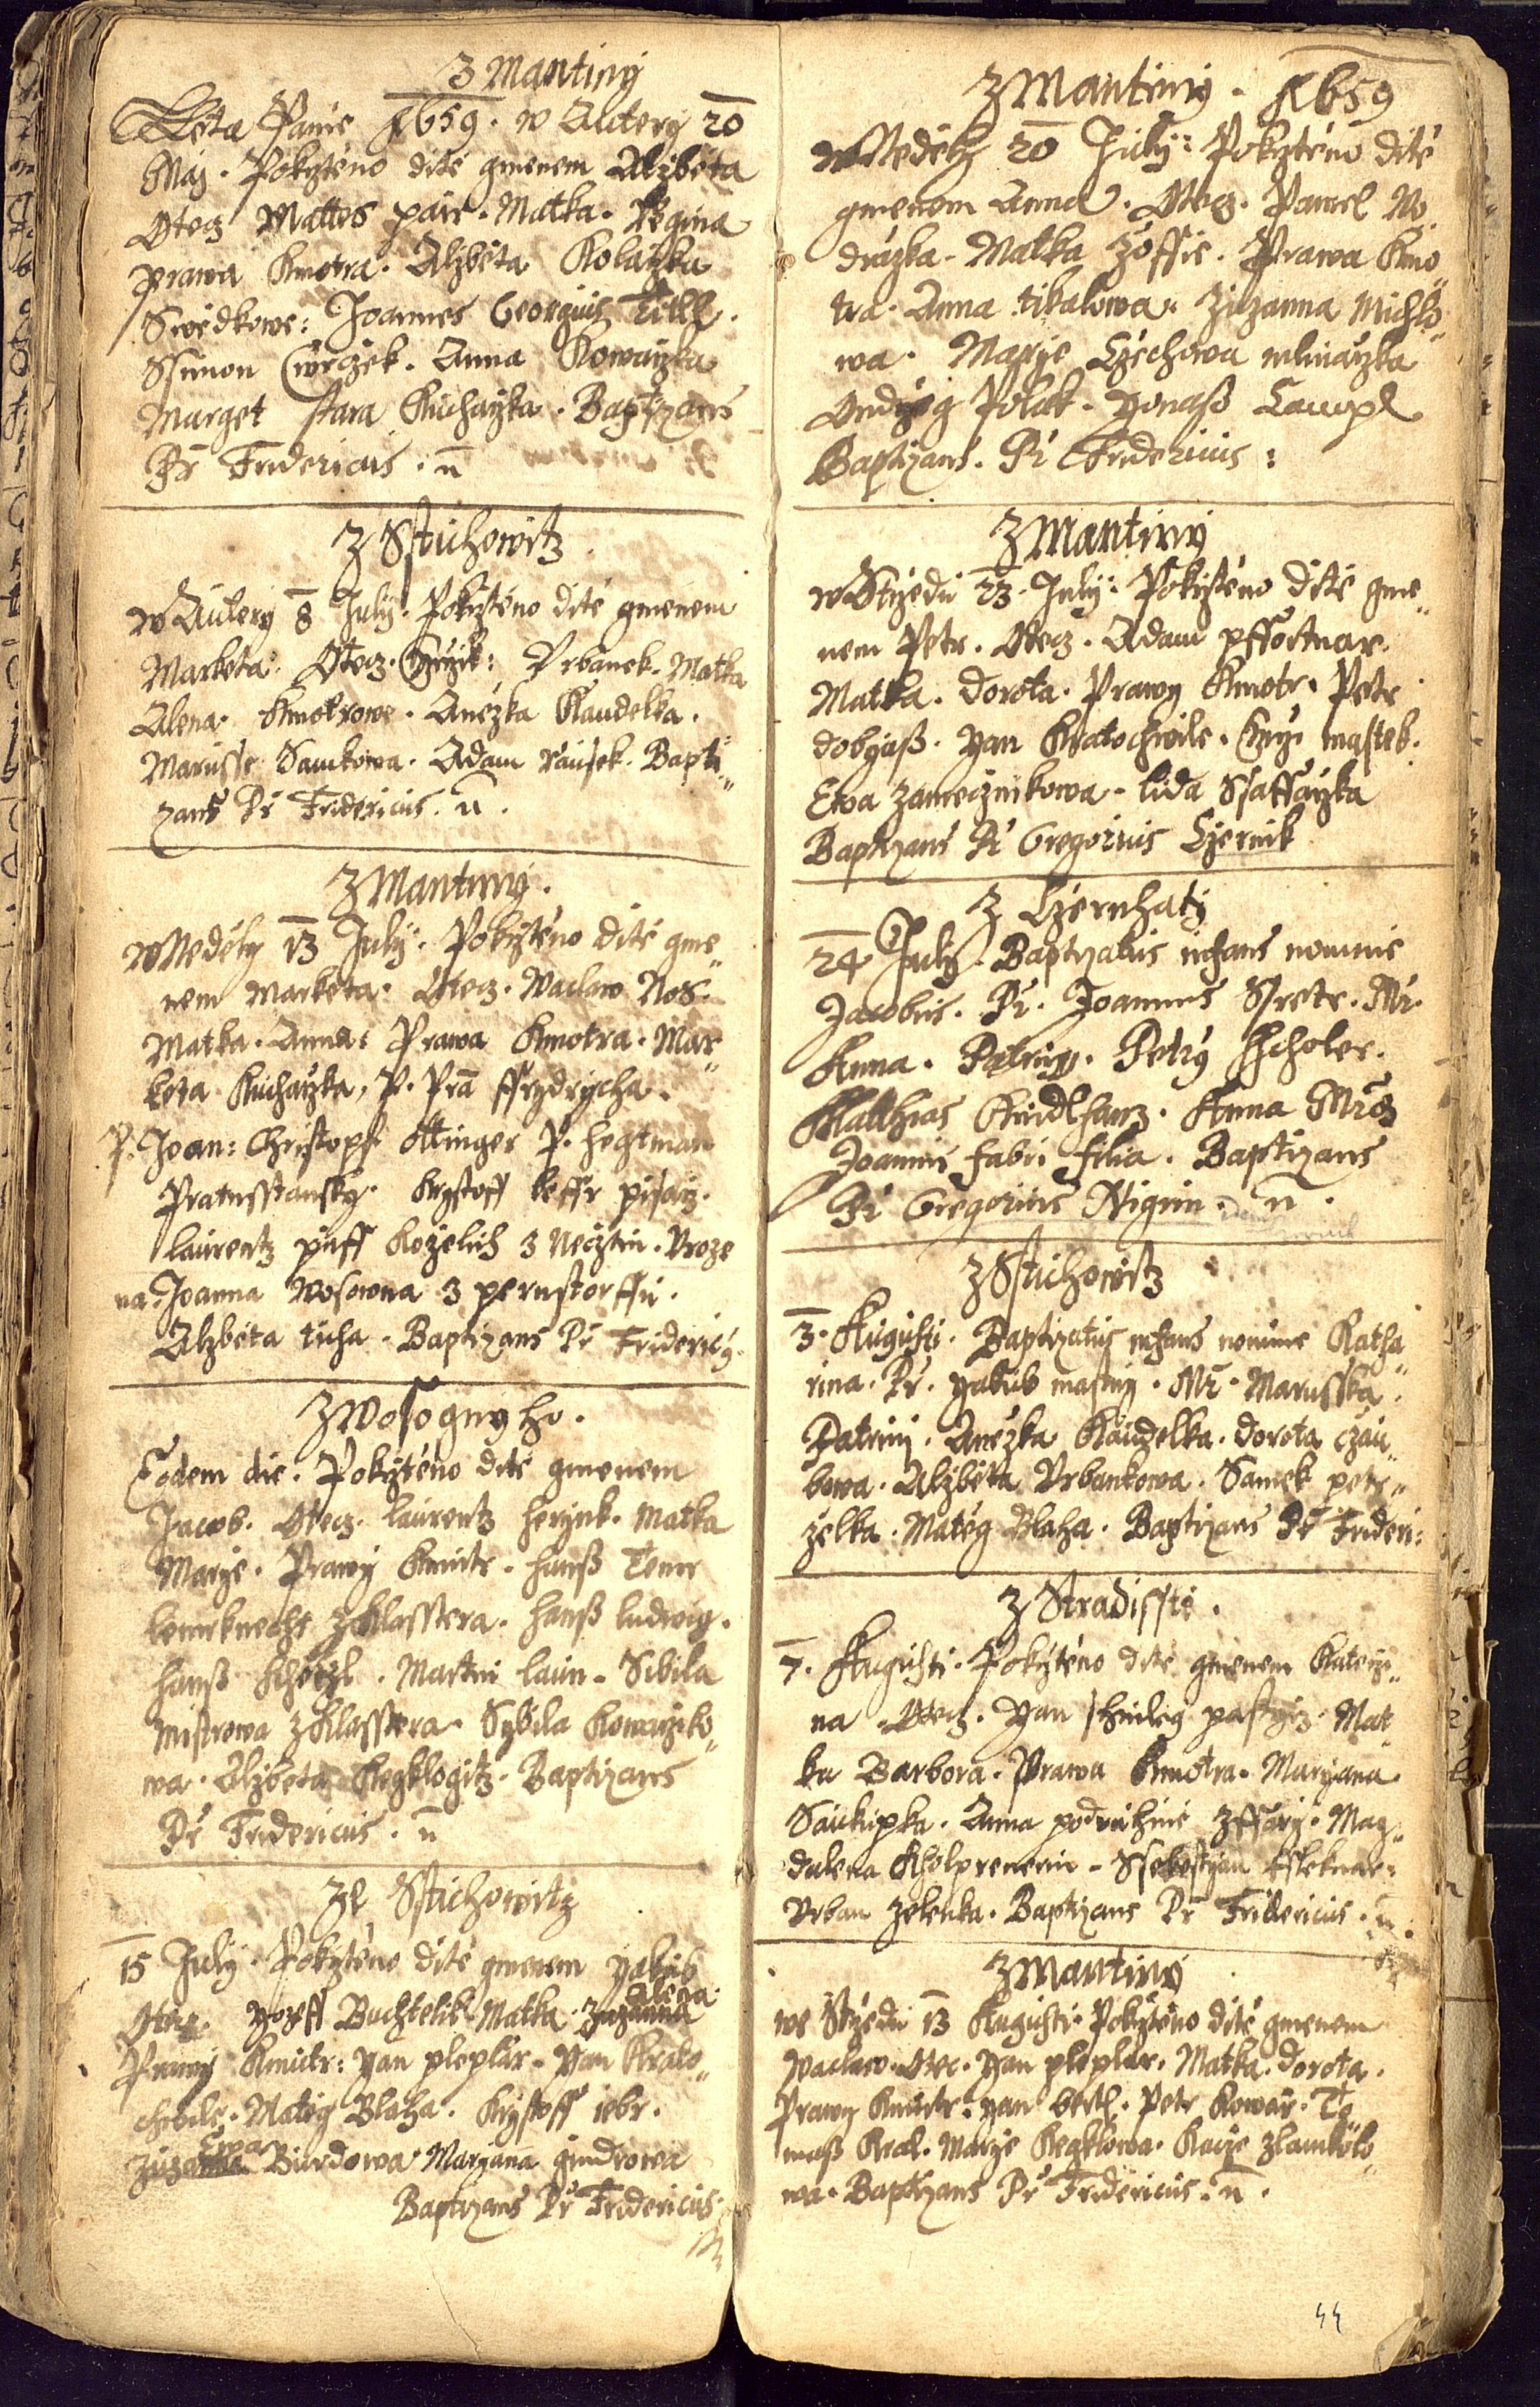 Z Mantiny
Leta Panie 1659. w Autery 20
Maj. Pokrztěno ditě gmenem Alzběta
Otecz Mattes pair. Matka. Regina
prawa Kmotra. Alzběta Kolařka
Swědkowe: Joannes Georgius Tikl.
Ssimon Cwrczek. Anna Kowařka
Marget stara Kuchařka. Baptizans
Pr Fridericus.
Z Sstichowitz
w Autery 8 July. Pokrztěno ditě gmenem
Marketa. Otecz. Urbanek. Matka
Alena. Kmotrowe. Anežka Kaudelka.
Marusse Samkowa. Adam rausek. Bapti„
zans Pr Fridericus.
Z Mantiny.
w Neděly 13 July. Pokrztěno ditě gme„
nem Marketa. Otecz. Waclaw Nos.
Matka. Anna: Prawa Kmotra. Mar„
keta Kuchařka, P. Pra ffrydrycha.
P. Joan: Christoph Ottinger P. hegtman
Pratusstansky. Krystoff keffr pisarz.
laurentz puff Koželuh z Necztin. Uroze
na Joanna Wosowna z pernstorffu.
Alzběta tucha. Baptizans Pr Fridericy.
Z Wosogny ho.
Eodem die. Pokrztěno ditě gmenem
Jacob. Otecz. laurentz herynk. Matka
Marze. Prawy Kmotr. hanß Temr
lemrknecht z klasstera. hanß ludwig.
hanß Schötzl. Martin laun. Sibila
Mistrowa z klasstera. Sybila Kowarziko„
wa. Alzběta Hegklogitz. Baptizans
Pr Fridericus.
Ze Sstichowitz
15 July. Pokrztěno ditě gmenem Yakub
Alena
Otecz. Yozeff Buchtelik Matka. Zuzanna
Prawy Kmotr: Yan pleplar. Yan Krato„
chwile. Matěg Blaha. Krystoff lebr.
Ewa
Zuzanna Burdowa Maryana gindrowa
Baptizans Pr Fridericus.
Z Mantiny. 1659
w Neděly 20 July: Pokrztěno ditě
gmenem Anna. Otecz. Pawel Wo„
drazka. Matka Zoffie. Prawa Kmo„
tra. Anna tikalowa. Zuzanna Michlo„
wa. Maryie Czechowa mlinařka
Ondrzeg Polak. Yonaß Lampl
Baptizans. Pr Fridericus:
Z Mantiny
w Strzedu 23. July: Pokrztěno ditě gme„
nem Petr. Otecz. Adam pssortnar.
Matka. dorota. Prawy Kmotr. Petr
dobyaß. Yan Kratochwile. mastek.
Ewa zamecznikowa. lida Ssaffarzka
Baptizans Pr Gregorius Czernik
Z Czernhatz
24 July. Baptizatus infans nomine
Jacobus. Pr. Joannes Sstetr. Mr.
Anna. Patriny. Petry Scholer.
Matthias Kindlhanz. Anna
Joannis Fabri filia. Baptizans
Pr Gregorius Nigrin.
Z Sstichowitz
3. Augusti. Baptizatus infans nomine Katha„
rina. Pr. Yakub mastny. Mr. Marusska.
Patrini. Anežka Kaudelka. dorota czau„
bowa. Alzběta Urbankowa. Samek petr„
želka. Matěg Blaha. Baptizans Pr Frideri:
Z Stradisste.
7. Augusti. Pokrztěno ditě gmenem Katerzi„
na. Otecz. Yan pastyrz. Mat„
ka Barbora. Prawa Kmotra. Maryana
Saukupka. Anna podruhine z ffary. Mag„
dalena Kholprenerin. Ssebestyan
Urban Zelenka. Baptizans Pr Fridericus.
Z Mantiny
we Strzedu 13 Augusti Pokrztěno ditě gmenem
Waclaw. Otec. Yan pleplar. Matka. dorota.
Prawy Kmotr. Yan bertl. Petr Kowar. To„
maß Kral. Marze Hegklowa. Kacze zlamkolo„
wa. Baptizans Pr Fridericus.
44